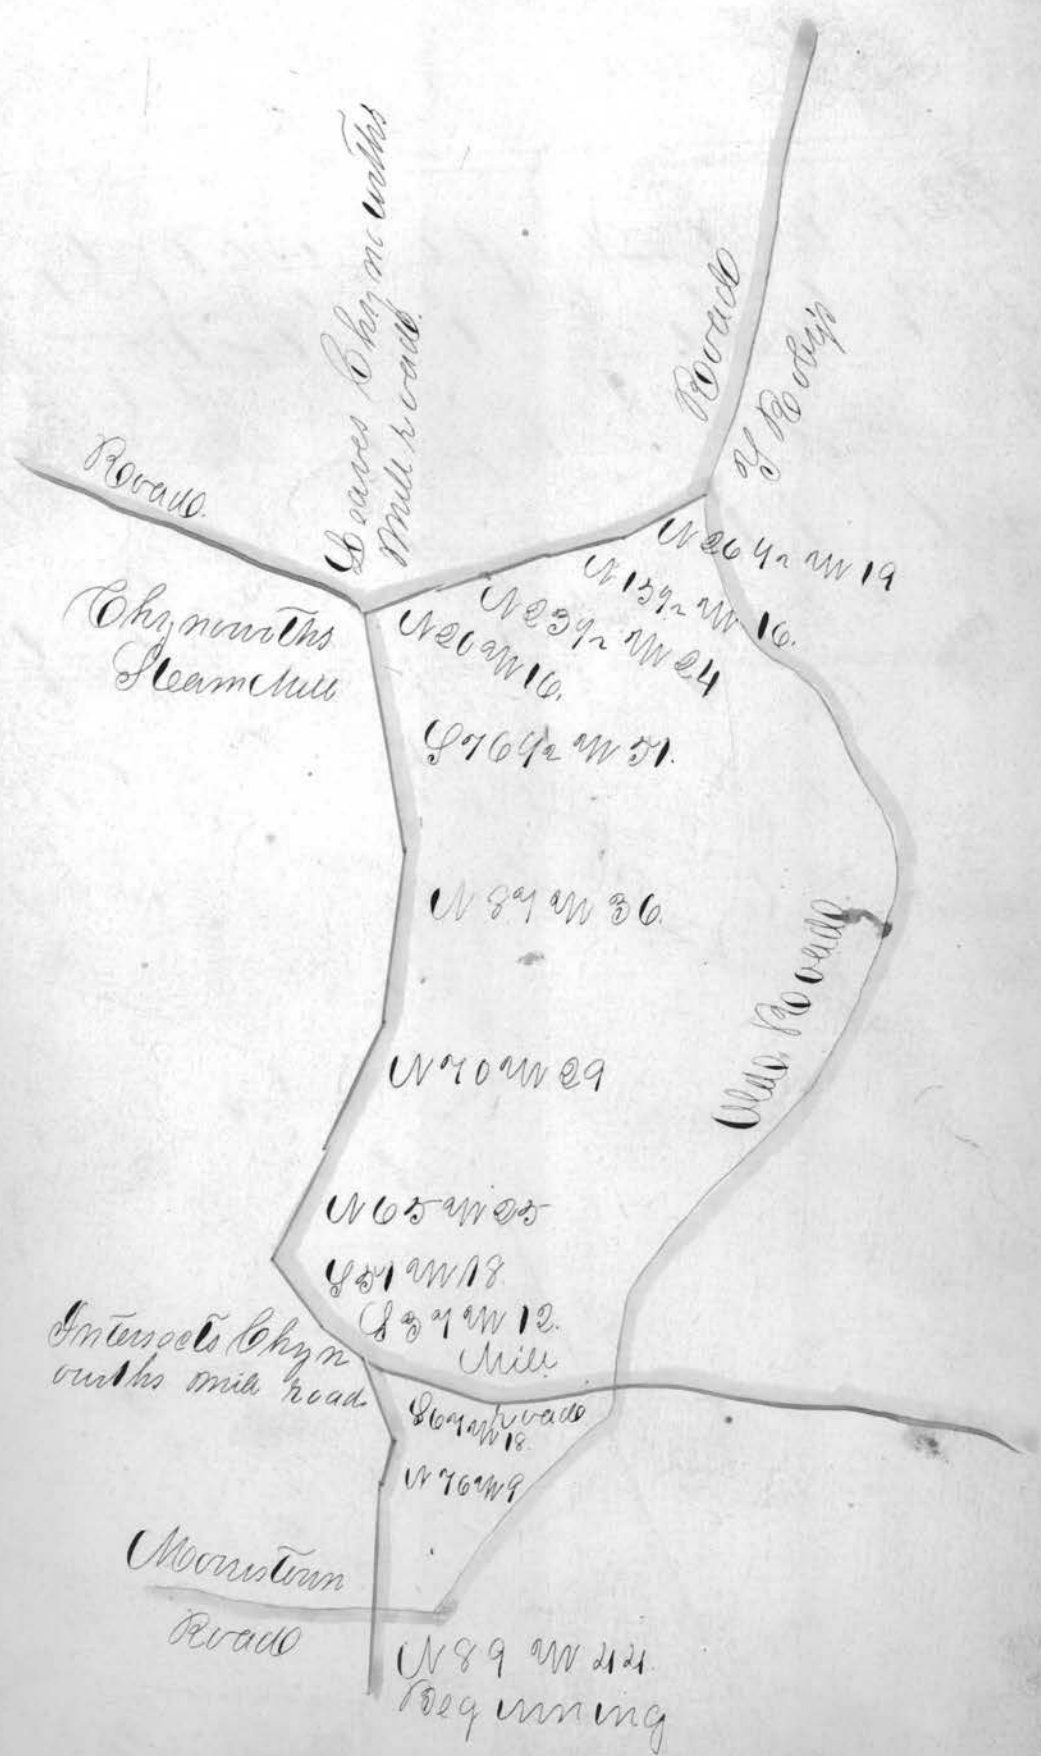 Leaves Chynowiths
Mill road.
Road
Y Roby's
Road.
Chynowiths
Steam Mill
N 26 1/2 W 19
N 13 1/2 W 16.
N 23 1/2 W 24
N 20 W 16.
S 76 1/2 W 51.
N 87 W 36.
Old Road
N 70 W 29
N 65 W 25
S 51 W 18
S 37 W 12.
Mill
road
Intersects Chyn
owiths mill road.
S 67 W 18.
N 76 W 9
Morristown
Road
N 89 W 44.
Beginning